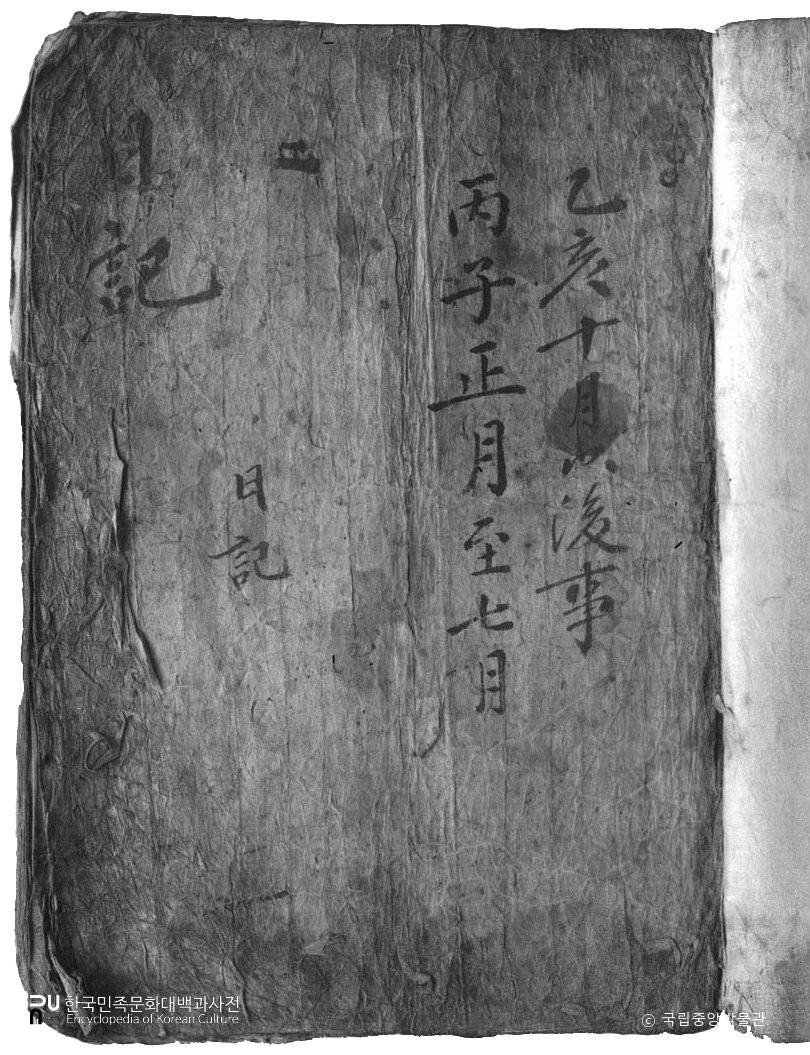 乙亥十月以後事
丙子正月至七月
日記
日記
한국민족문화대백과사전
Encyclopedia of Korean Culture
© 국립중앙박물관